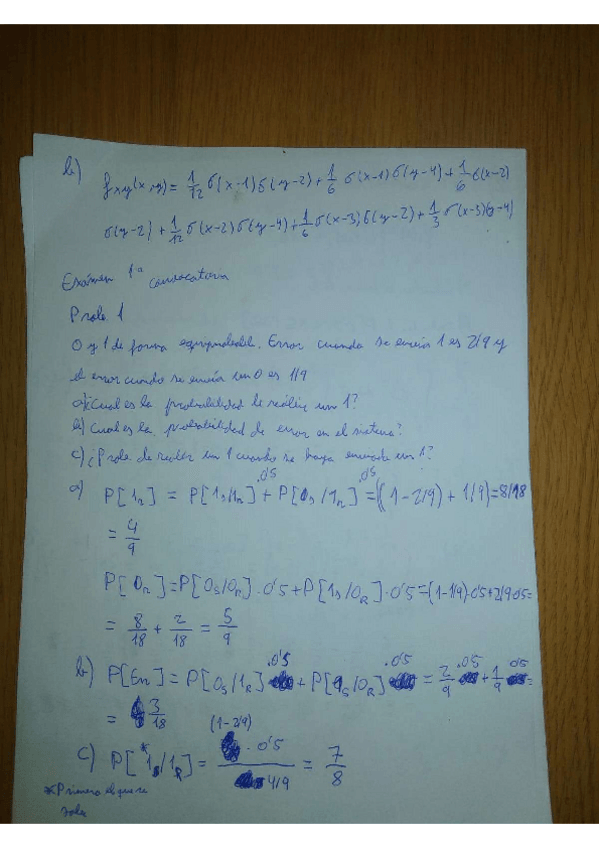 b) fxy(x,y) = 1/12 σ(x-1)σ(y-2) + 1/6 σ(x-1)σ(y-4) + 1/6 σ(x-2)
σ(y-2) + 1/12 σ(x-2)σ(y-4) + 1/6 σ(x-3)σ(y-2) + 1/3 σ(x-3)(y-4)
Exámen 1ª convocatoria
Prob. 1
0 y 1 de forma equiprobable. Error cuando se envía 1 es 2/9 y
el error cuando se envía un 0 es 1/9
a) ¿Cual es la probabilidad de recibir un 1?
b) Cual es la probabilidad de error en el sistema?
c) ¿Prob. de recibir un 1 cuando se haya enviado un 1?
a) P[1R] = P[1s/1R].0'5 + P[0s/1R].0'5 = ((1-2/9) + 1/9) = 8/18
= 4/9
P[0R] = P[0s/0R].0'5 + P[1s/0R].0'5 = (1-1/9).0'5 + 2/9.0'5 =
= 8/18 + 2/18 = 5/9
b) P[En] = P[0s/1R].0'5 + P[1s/0R].0'5 = 2/9.0'5 + 1/9.0'5 =
= 3/18
c) P[*1s/1R] = (1-2/9).0'5 / 4/9 = 7/8
*Primero el que se